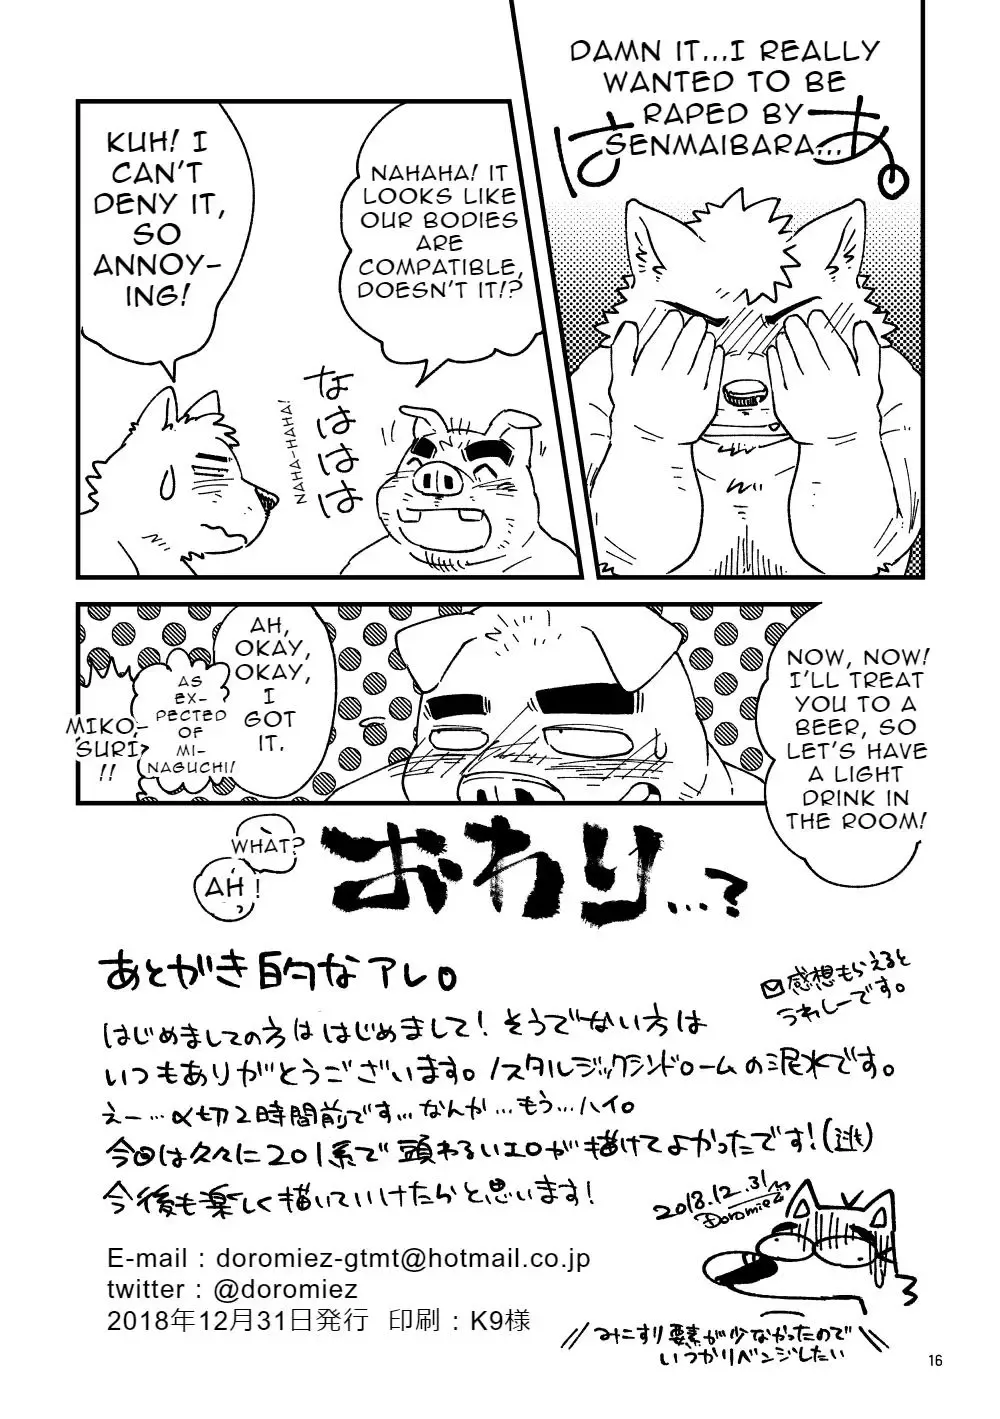 DAMN IT...I REALLY
WANTED TO BE
RAPED BY
SENMAIBARA...
はあ。
NAHAHA! IT
LOOKS LIKE
OUR BODIES
ARE
COMPATIBLE,
DOESN'T IT!?
KUH! I
CAN'T
DENY IT,
SO
ANNOY-
ING!
なははは
NAHA-HAHA!
NOW, NOW!
I'LL TREAT
YOU TO A
BEER, SO
LET'S HAVE
A LIGHT
DRINK IN
THE ROOM!
AH,
OKAY,
OKAY,
I
GOT
IT.
AS
EX-
PECTED
OF
MI-
NAGUCHI!
MIKO-
SURI
!!
WHAT?
AH!
おわり...?
あとがき的なアレ。
感想もらえると
うれしーです。
はじめましての方ははじめまして!そうでない方は
いつもありがとうございます。ノスタルジックシンドロームの泥水です。
えー…〆切2時間前です…なんか…もう…ハイ。
今回は久々に201系で頭わるいエロが描けてよかったです!(逃)
今後も楽しく描いていけたらと思います!
2018.12.31
Doromiez
E-mail : doromiez-gtmt@hotmail.co.jp
twitter : @doromiez
2018年12月31日発行 印刷 : K9様
みこすり要素が少なかったので
いつかリベンジしたい
16